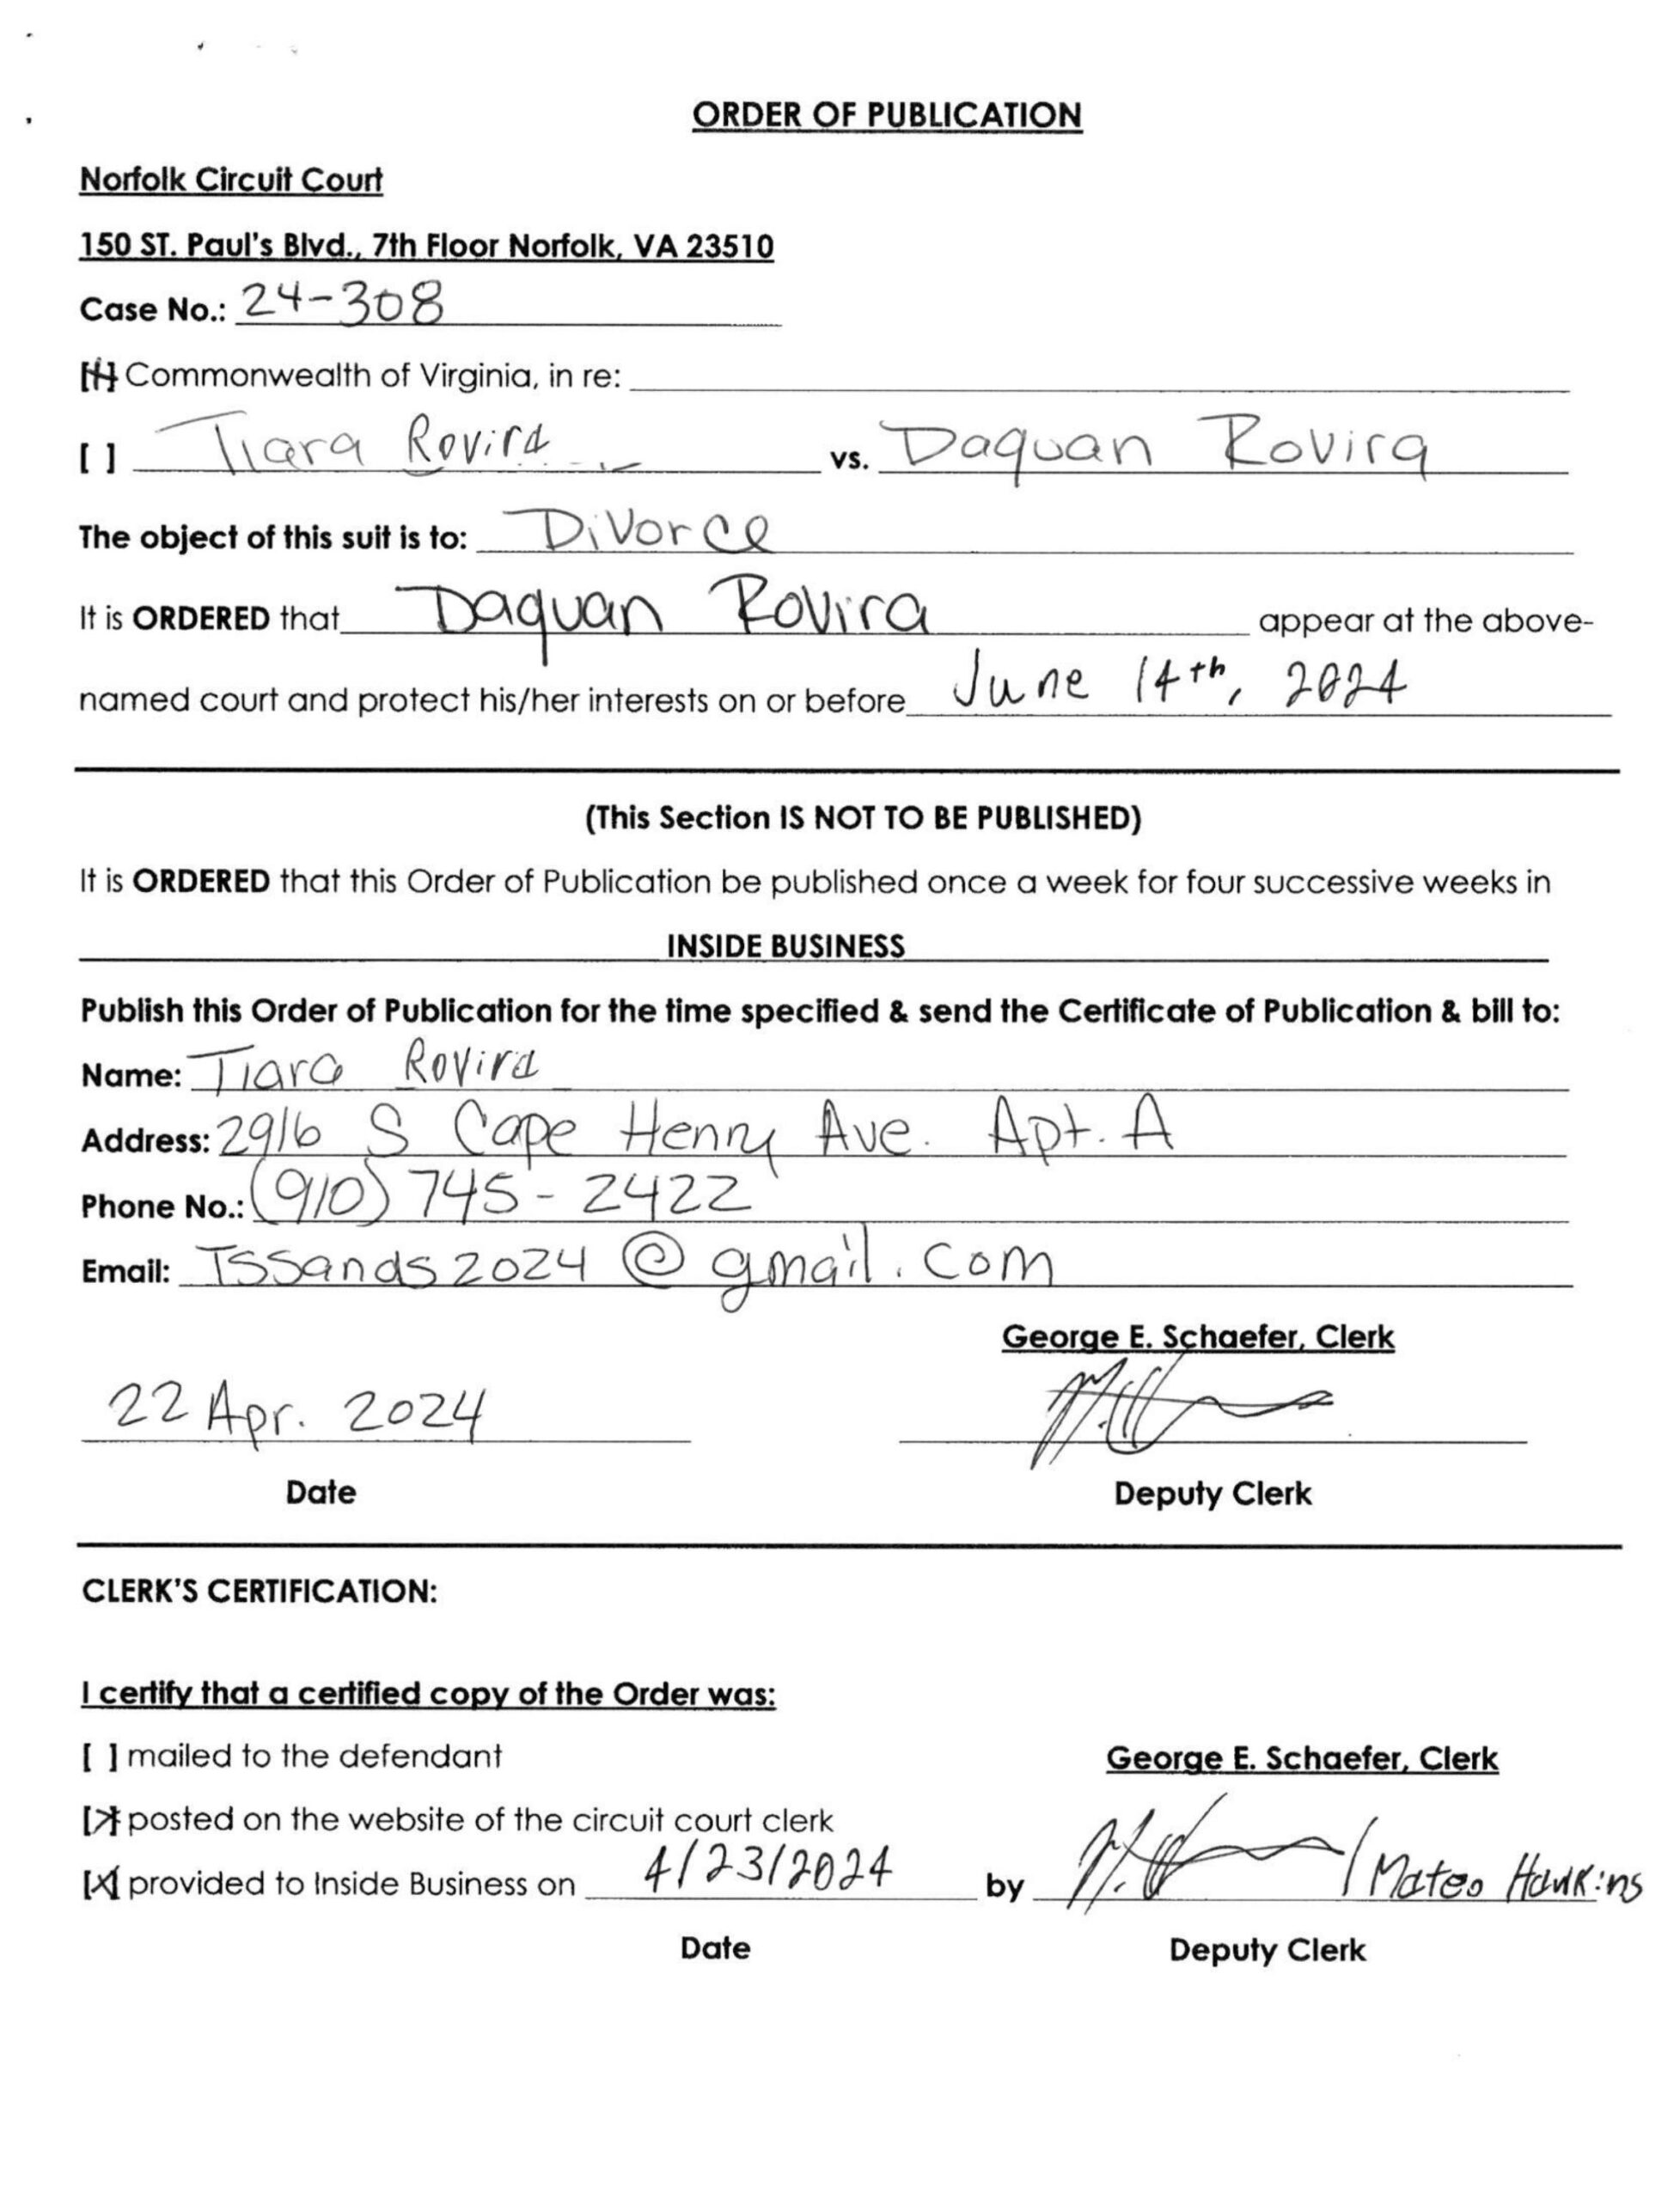 ORDER OF PUBLICATION
Norfolk Circuit Court
150 ST. Paul's Blvd., 7th Floor Norfolk, VA 23510
Case No.: 24-308
[ ] Commonwealth of Virginia, in re:
[ ] Tiara Rovira vs. Daquan Rovira
The object of this suit is to: Divorce
It is ORDERED that Daquan Rovira appear at the above-
named court and protect his/her interests on or before June 14th, 2024
(This Section IS NOT TO BE PUBLISHED)
It is ORDERED that this Order of Publication be published once a week for four successive weeks in
INSIDE BUSINESS
Publish this Order of Publication for the time specified & send the Certificate of Publication & bill to:
Name: Tiara Rovira
Address: 2916 S Cape Henry Ave. Apt. A
Phone No.: (910) 745-2422
Email: Tssands2024@gmail.com
George E. Schaefer, Clerk
22 Apr. 2024
Date Deputy Clerk
CLERK'S CERTIFICATION:
I certify that a certified copy of the Order was:
[ ] mailed to the defendant George E. Schaefer, Clerk
[X] posted on the website of the circuit court clerk
[X] provided to Inside Business on 4/23/2024 by / Mateo Hawkins
Date Deputy Clerk